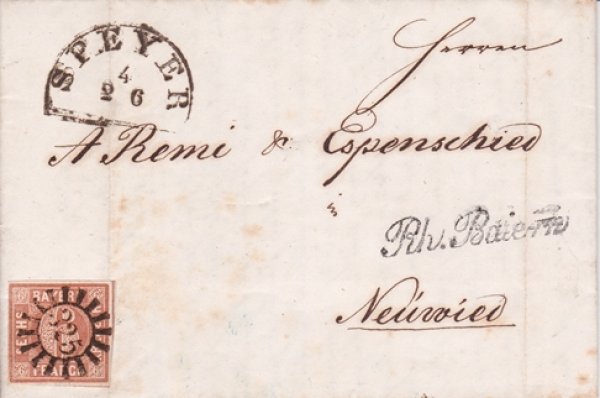 SPEYER
4
2 6
Herren
A Remi & Espenschied
Rh. Baiern
Neúwied
BAYERN
SECHS
325
FRANCO
6